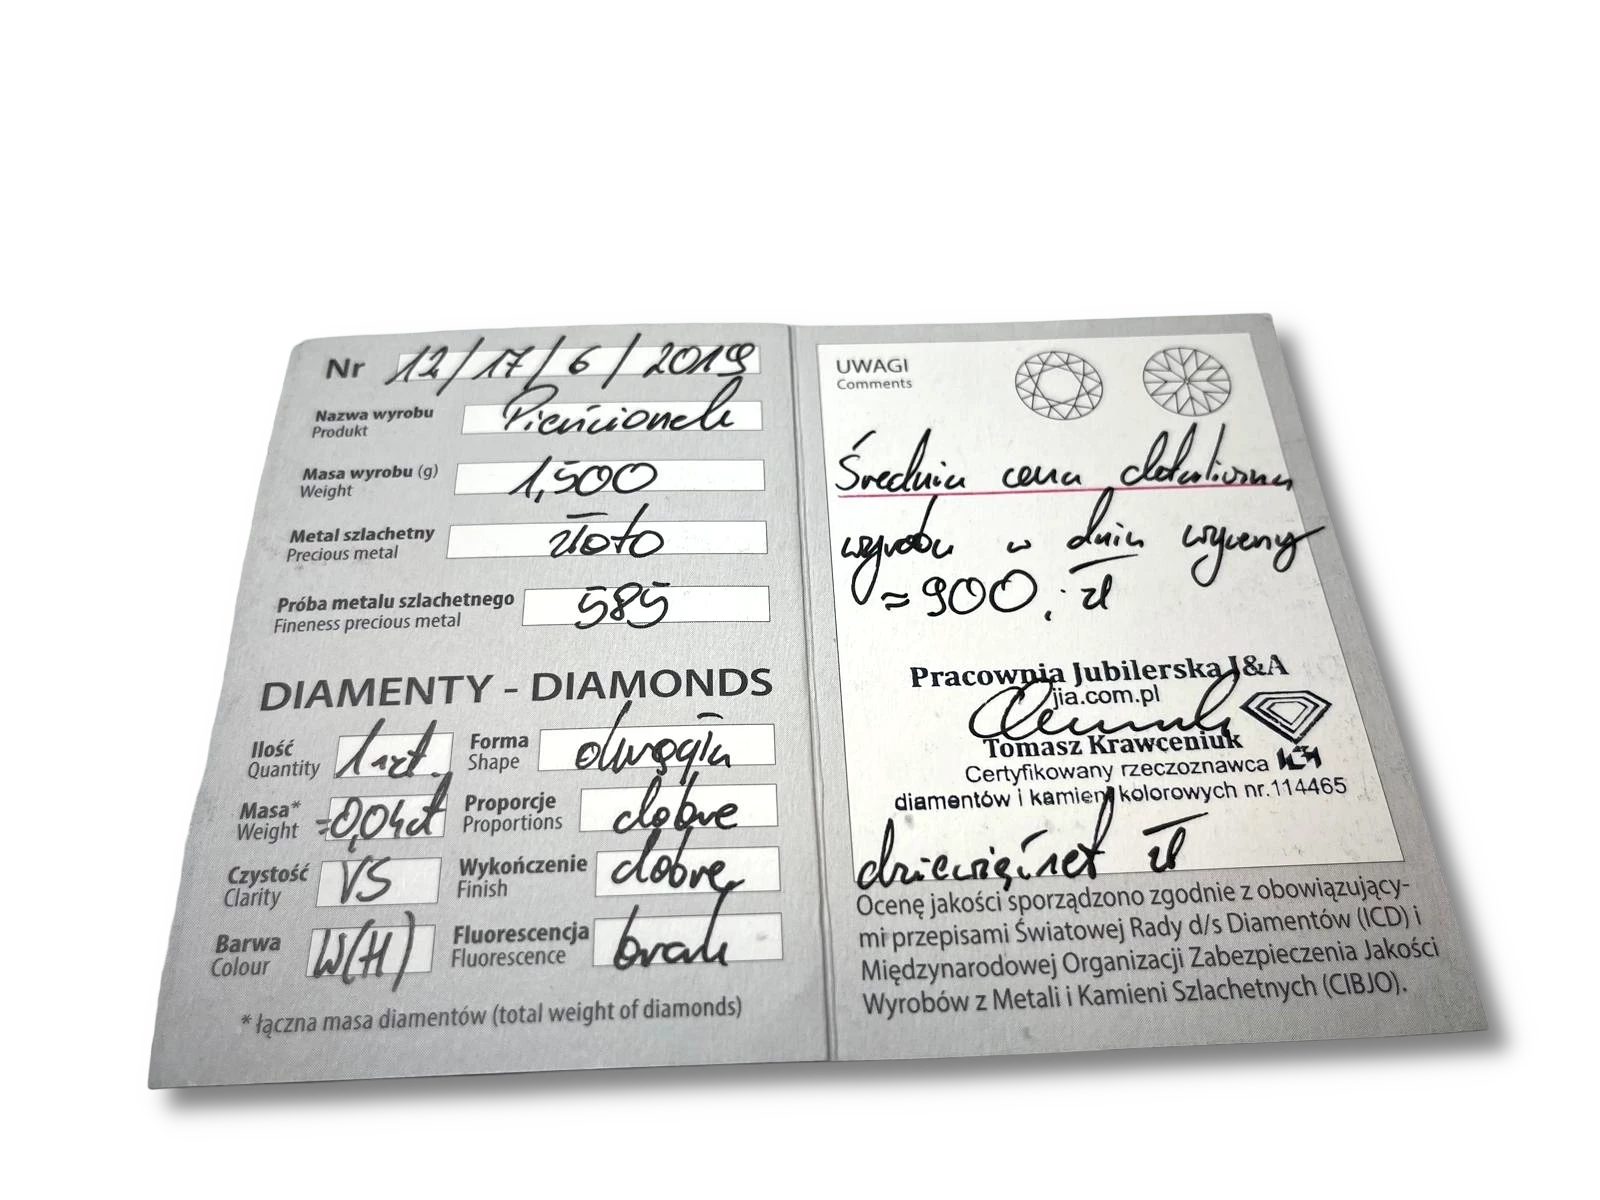 Nr 12/17/6/2019
Nazwa wyrobu Pierścionek
Produkt
Masa wyrobu (g) 1,500
Weight
Metal szlachetny złoto
Precious metal
Próba metalu szlachetnego 585
Fineness precious metal
DIAMENTY - DIAMONDS
Ilość 1 szt. Forma okrągła
Quantity Shape
Masa* =0,04ct Proporcje dobre
Weight Proportions
Czystość VS Wykończenie dobre
Clarity Finish
Barwa W(H) Fluorescencja brak
Colour Fluorescence
* łączna masa diamentów (total weight of diamonds)
UWAGI
Comments
Średnia cena detaliczna
wyrobu w dniu wyceny
≈ 900,- zł
Pracownia Jubilerska J&A
jia.com.pl
Tomasz Krawceniuk
Certyfikowany rzeczoznawca
diamentów i kamieni kolorowych nr.114465
dziewięćset zł
Ocenę jakości sporządzono zgodnie z obowiązujący-
mi przepisami Światowej Rady d/s Diamentów (ICD) i
Międzynarodowej Organizacji Zabezpieczenia Jakości
Wyrobów z Metali i Kamieni Szlachetnych (CIBJO).